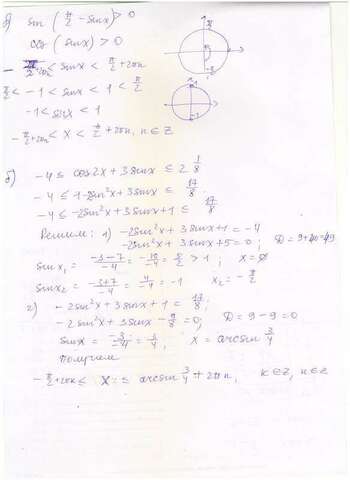 δ) sin (π/2 - sinx) > 0
cos (sinx) > 0
- π/2 < sinx < π/2 + 2πn
π/2 < -1 < sinx < 1 < π/2
-1 < sinx < 1
-π/2+2πn < x < π/2 + 2πn, n ∈ Z
б) -4 ≤ cos2x + 3sinx ≤ 2 1/8
-4 ≤ 1-2sin²x + 3sinx ≤ 17/8
-4 ≤ -2sin²x + 3sinx + 1 ≤ 17/8
Решим: 1) -2sin²x + 3sinx + 1 = -4
-2sin²x + 3sinx + 5 = 0; D = 9+40=49
sinx₁ = -3-7/-4 = -10/-4 = 5/2 > 1; x = ∅
sinx₂ = -3+7/-4 = 4/-4 = -1 x₂ = -π/2
2) -2sin²x + 3sinx + 1 = 17/8;
-2sin²x + 3sinx - 9/8 = 0; D = 9-9=0
sinx = -3/-4 = 3/4; x = arcsin 3/4
Получим
-π/2+2πk ≤ x ≤ arcsin 3/4 + 2πn, k ∈ Z, n ∈ Z